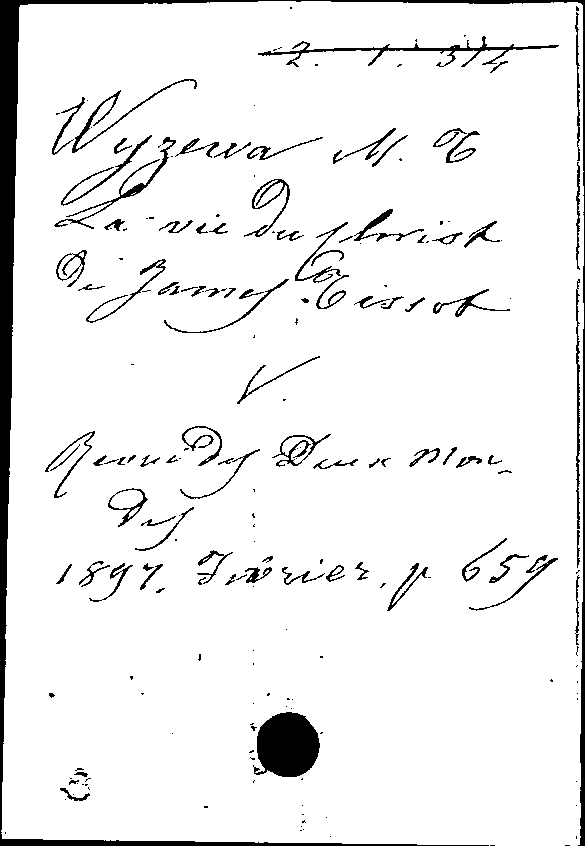 2. 1. 314
Wyzewa M. T
La vie du Christ
de James Tissot
V.
Revue des Deux Mon-
des
1897. Février. p 659